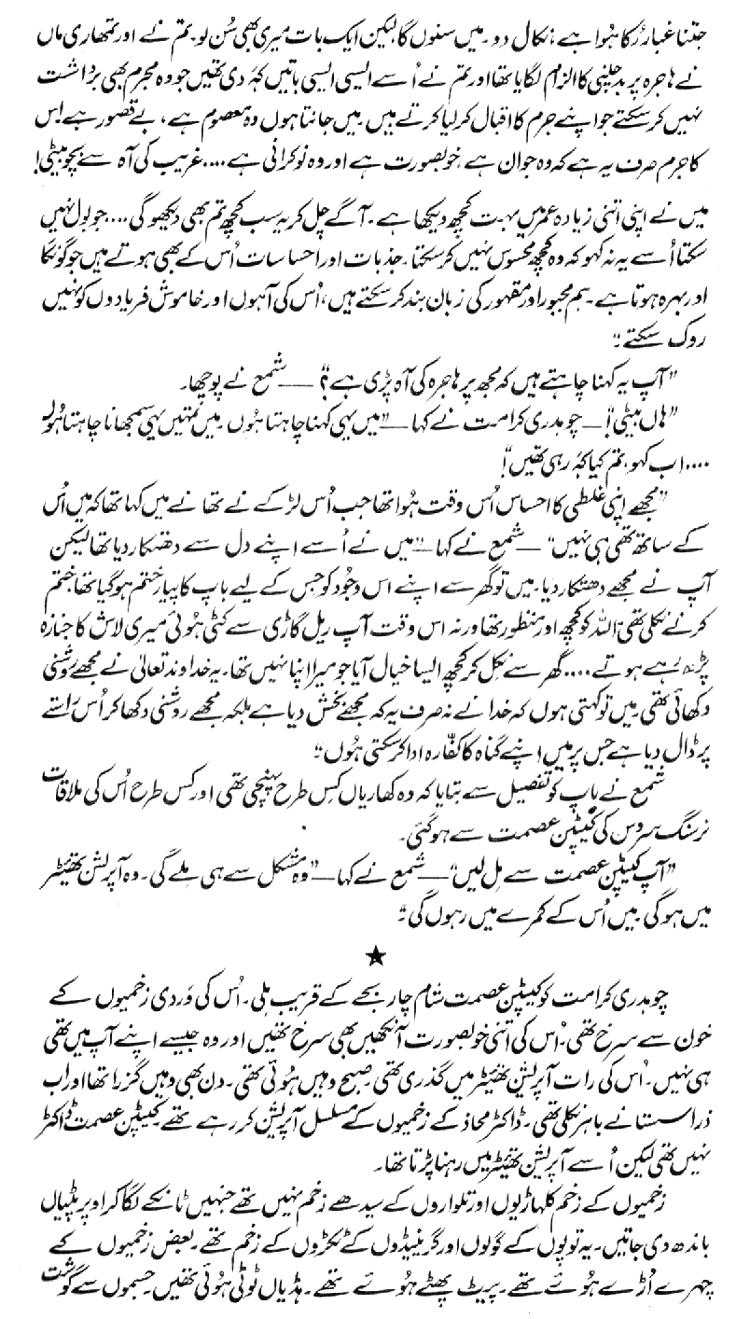 جتنا غبار رُکا ہُوا ہے، نکال دو۔ میں سنوں گا لیکن ایک بات میری بھی سُن لو۔ تم نے اور تمھاری ماں
نے ہاجرہ پر بدچلنی کا الزام لگایا تھا اور تم نے اُسے ایسی ایسی باتیں کہہ دی تھیں جو وہ مجرم بھی برداشت
نہیں کر سکتے جو اپنے جرم کا اقبال کر لیا کرتے ہیں۔ میں جانتا ہوں وہ معصوم ہے، بے قصور ہے۔ اس
کا جرم صرف یہ ہے کہ وہ جوان ہے خوبصورت ہے اور وہ نوکرانی ہے.... غریب کی آہ سے بچو بیٹی!
میں نے اپنی اتنی زیادہ عمر میں بہت کچھ دیکھا ہے۔ آگے چل کر یہ سب کچھ تم بھی دیکھو گی .... جو بول نہیں
سکتا اُسے یہ نہ کہو کہ وہ کچھ محسوس نہیں کر سکتا۔ جذبات اور احساسات اُس کے بھی ہوتے ہیں جو گونگا
اور بہرہ ہوتا ہے۔ ہم مجبور اور مقہور کی زبان بند کر سکتے ہیں، اُس کی آہوں اور خاموش فریادوں کو نہیں
روک سکتے۔"
"آپ یہ کہنا چاہتے ہیں کہ مجھ پر ہاجرہ کی آہ پڑی ہے؟" — شمع نے پوچھا۔
"ہاں بیٹی!" — چوہدری کرامت نے کہا — "میں یہی کہنا چاہتا ہُوں۔ میں تمہیں یہی سمجھانا چاہتا ہُوں
.... اب کہو، تم کیا کہہ رہی تھیں!"
"مجھے اپنی غلطی کا احساس اُس وقت ہُوا تھا جب اُس لڑکے نے تھانے میں کہا تھا کہ میں اُس
کے ساتھ تھی ہی نہیں" — شمع نے کہا — "میں نے اُسے اپنے دل سے دھتکار دیا تھا لیکن
آپ نے مجھے دھتکار دیا۔ میں تو گھر سے اپنے اس وجُود کو جس کے لیے باپ کا پیار ختم ہو گیا تھا ختم
کرنے نکلی تھی۔ اللہ کو کچھ اور منظور تھا ورنہ اس وقت آپ ریل گاڑی سے کٹی ہُوئی میری لاش کا جنازہ
پڑھ رہے ہوتے .... گھر سے نکل کر کچھ ایسا خیال آیا جو میرا اپنا نہیں تھا۔ یہ خداوند تعالیٰ نے مجھے روشنی
دکھائی تھی میں تو کہتی ہوں کہ خدا نے نہ صرف یہ کہ مجھے بخش دیا ہے بلکہ مجھے روشنی دکھا کر اُس راستے
پر ڈال دیا ہے جس پر میں اپنے گناہ کا کفارہ ادا کر سکتی ہُوں۔"
شمع نے باپ کو تفصیل سے بتایا کہ وہ کھاریاں کس طرح پہنچی تھی اور کس طرح اُس کی ملاقات
نرسنگ سروس کی کیپٹن عصمت سے ہو گئی۔
"آپ کیپٹن عصمت سے مل لیں" — شمع نے کہا — "وہ مشکل سے ہی ملے گی۔ وہ آپریشن تھیئٹر
میں ہو گی۔ میں اُس کے کمرے میں رہوں گی۔"
★
چوہدری کرامت کو کیپٹن عصمت شام چار بجے کے قریب ملی۔ اُس کی وَردی زخمیوں کے
خون سے سرخ تھی۔ اُس کی اتنی خوبصورت آنکھیں بھی سرخ تھیں اور وہ جیسے اپنے آپ میں تھی
ہی نہیں۔ اُس کی رات آپریشن تھیئٹر میں گذری تھی۔ صبح وہیں ہُوئی تھی۔ دن بھی وہیں گزرا تھا اور اب
ذرا سستانے باہر نکلی تھی۔ ڈاکٹر محاذ کے زخمیوں کے مسلسل آپریشن کر رہے تھے۔ کیپٹن عصمت ڈاکٹر
نہیں تھی لیکن اُسے آپریشن تھیئٹر میں رہنا پڑتا تھا۔
زخمیوں کے زخم کلہاڑیوں اور تلواروں کے سیدھے زخم نہیں تھے جنہیں ٹانکے لگا کر اوپر پٹیاں
باندھ دی جاتیں۔ یہ توپوں کے گولوں اور گرنیڈوں کے ٹکڑوں کے زخم تھے۔ بعض زخمیوں کے
چہرے اُڑے ہُوئے تھے۔ پیٹ پھٹے ہُوئے تھے۔ ہڈیاں ٹوٹی ہُوئی تھیں۔ جسموں سے گوشت